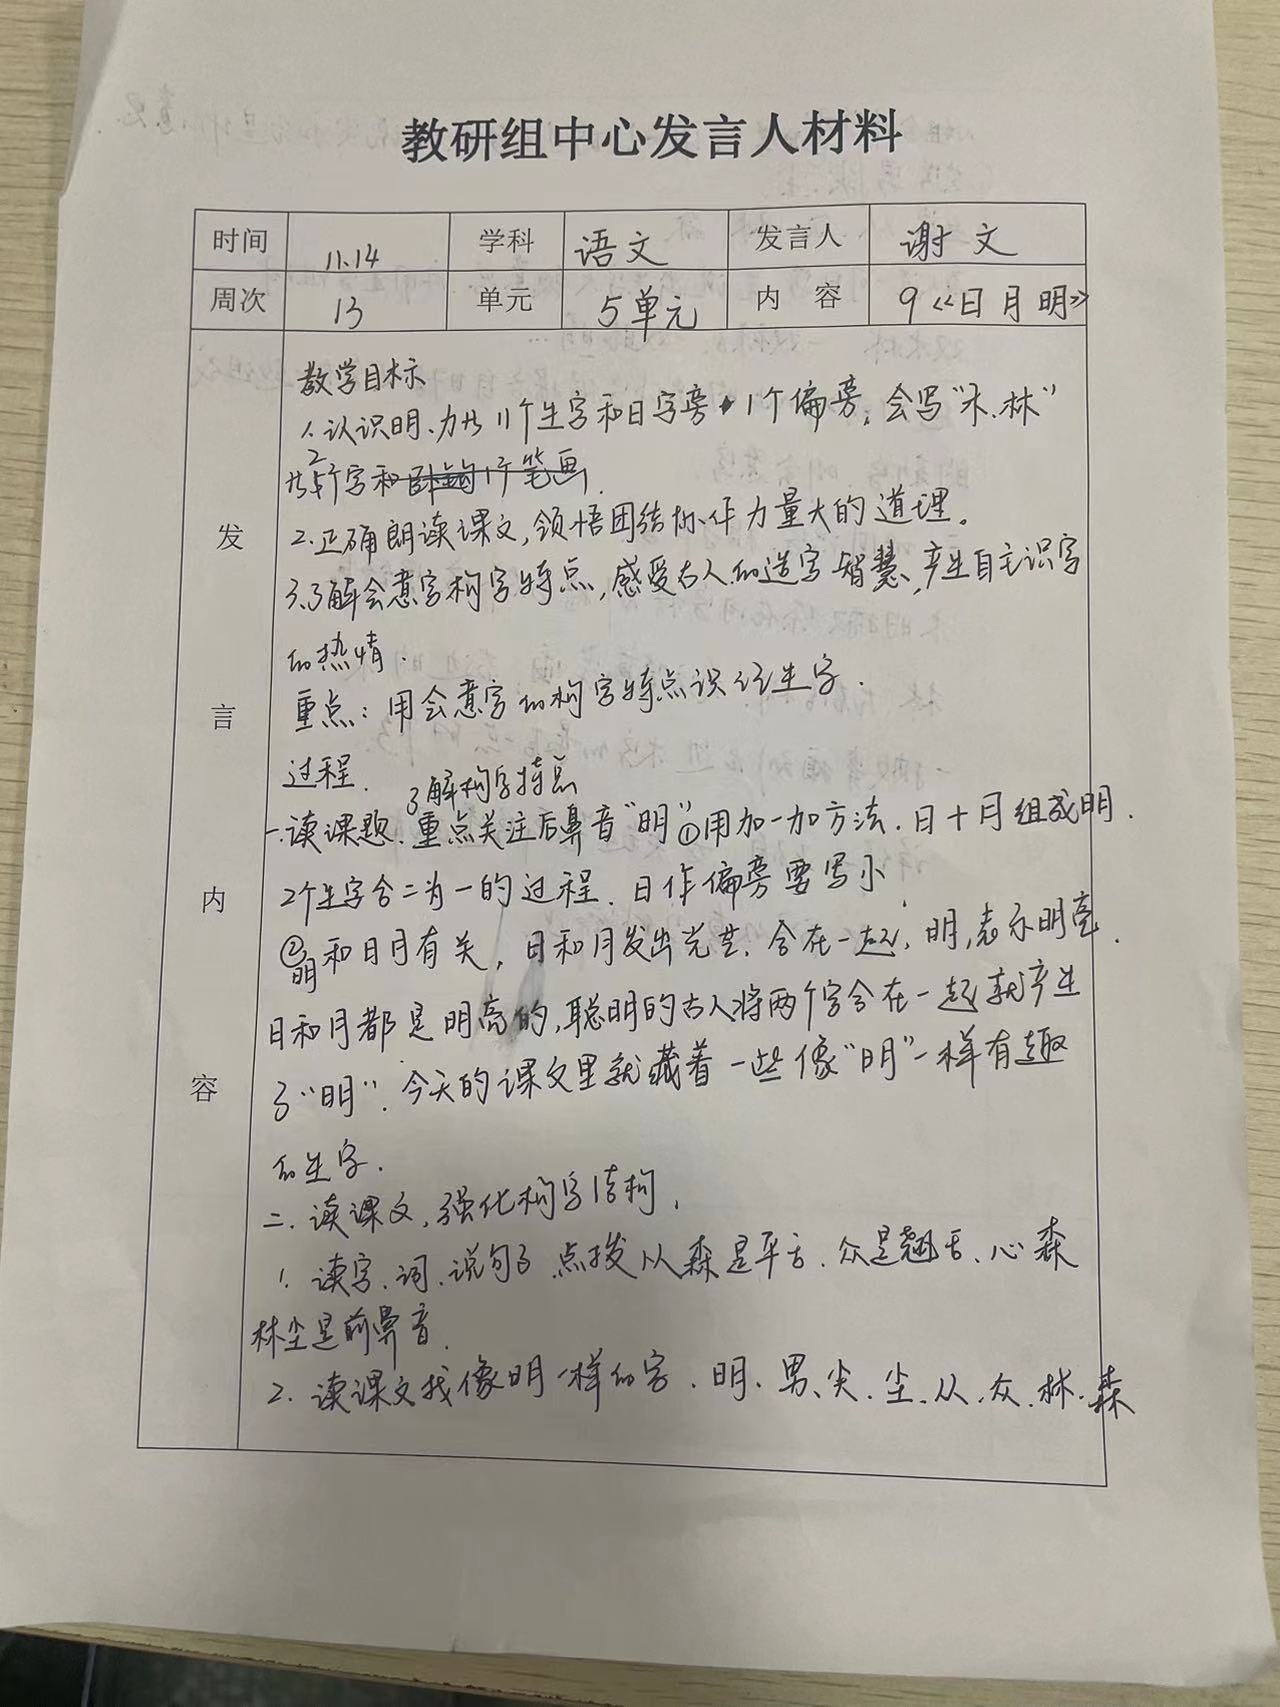 教研组中心发言人材料
时间 11.14 学科 语文 发言人 谢文
周次 13 单元 5单元 内容 9《日月明》
发言内容
教学目标
1.认识明、力等11个生字和日字旁1个偏旁,会写"木、林"
等2个字和卧钩1个笔画.
2.正确朗读课文,领悟团结协作力量大的道理。
3.了解会意字构字特点,感受古人的造字智慧,产生自主识字
的热情.
重点:用会意字的构字特点识记生字.
过程.
了解构字特点
一.读课题.重点关注后鼻音"明"①用加一加方法.日十月组成明.
2个生字合二为一的过程.日作偏旁要写小
②明和日月有关,日和月发出光芒.合在一起,明,表示明亮.
日和月都是明亮的,聪明的古人将两个字合在一起就产生
了"明".今天的课文里就藏着一些像"明"一样有趣
的生字.
二.读课文,强化构字结构.
1.读字、词、说句子.点拨从森是平舌.众是翘舌、心森
林尘是前鼻音.
2.读课文找像明一样的字.明、男、尖、尘、从、众、林、森